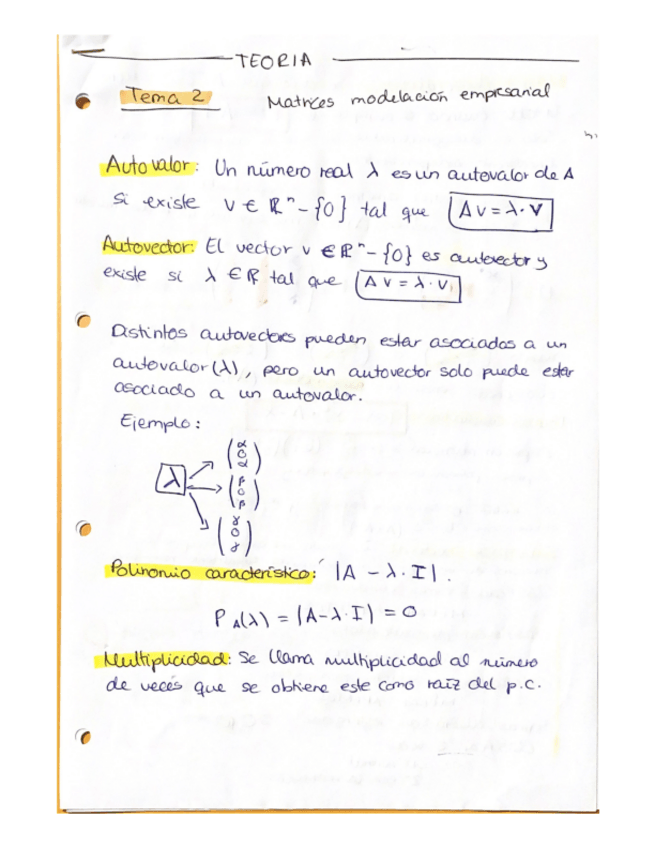 TEORIA
Tema 2 Matrices modelación empresarial
Autovalor: Un número real λ es un autovalor de A
si existe v ∈ ℝⁿ - {0} tal que Av = λ · v
Autovector: El vector v ∈ ℝⁿ - {0} es autovector y
existe si λ ∈ ℝ tal que A v = λ · v
Distintos autovectores pueden estar asociados a un
autovalor (λ), pero un autovector solo puede estar
asociado a un autovalor.
Ejemplo:
(α 0 α)
λ (β 0 β)
(γ 0 γ)
Polinomio característico: |A - λ · I|.
P A(λ) = |A - λ · I| = 0
Multiplicidad: Se llama multiplicidad al número
de veces que se obtiene este como raíz del p.c.